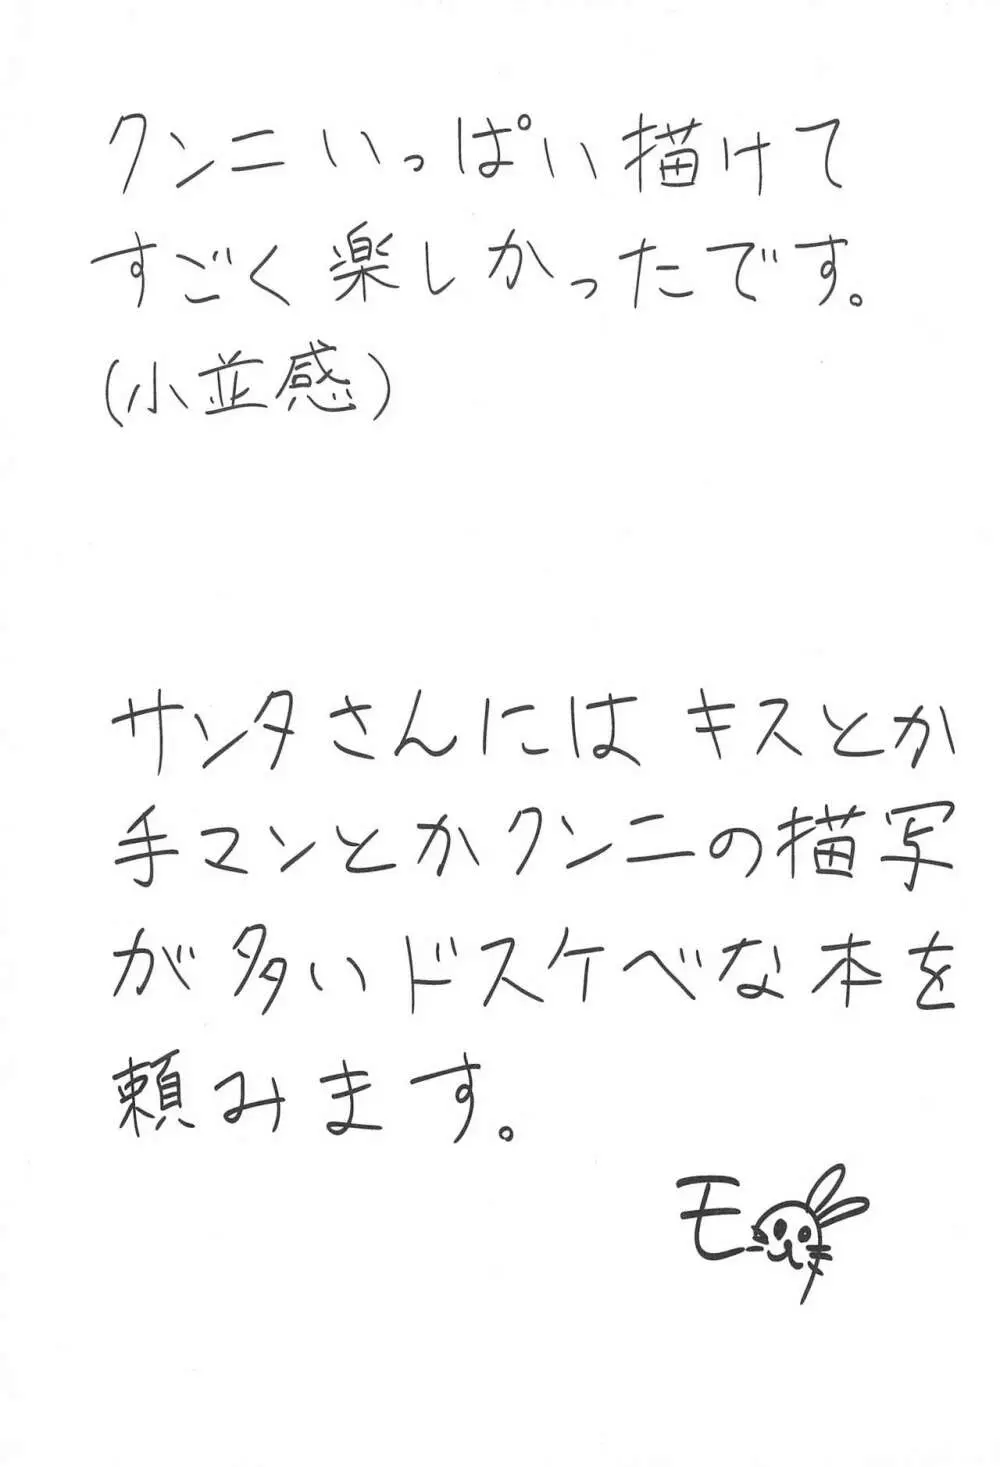 クンニいっぱい描けて
すごく楽しかったです。
(小並感)
サンタさんにはキスとか
手マンとかクンニの描写
が多いドスケベな本を
頼みます。
モ